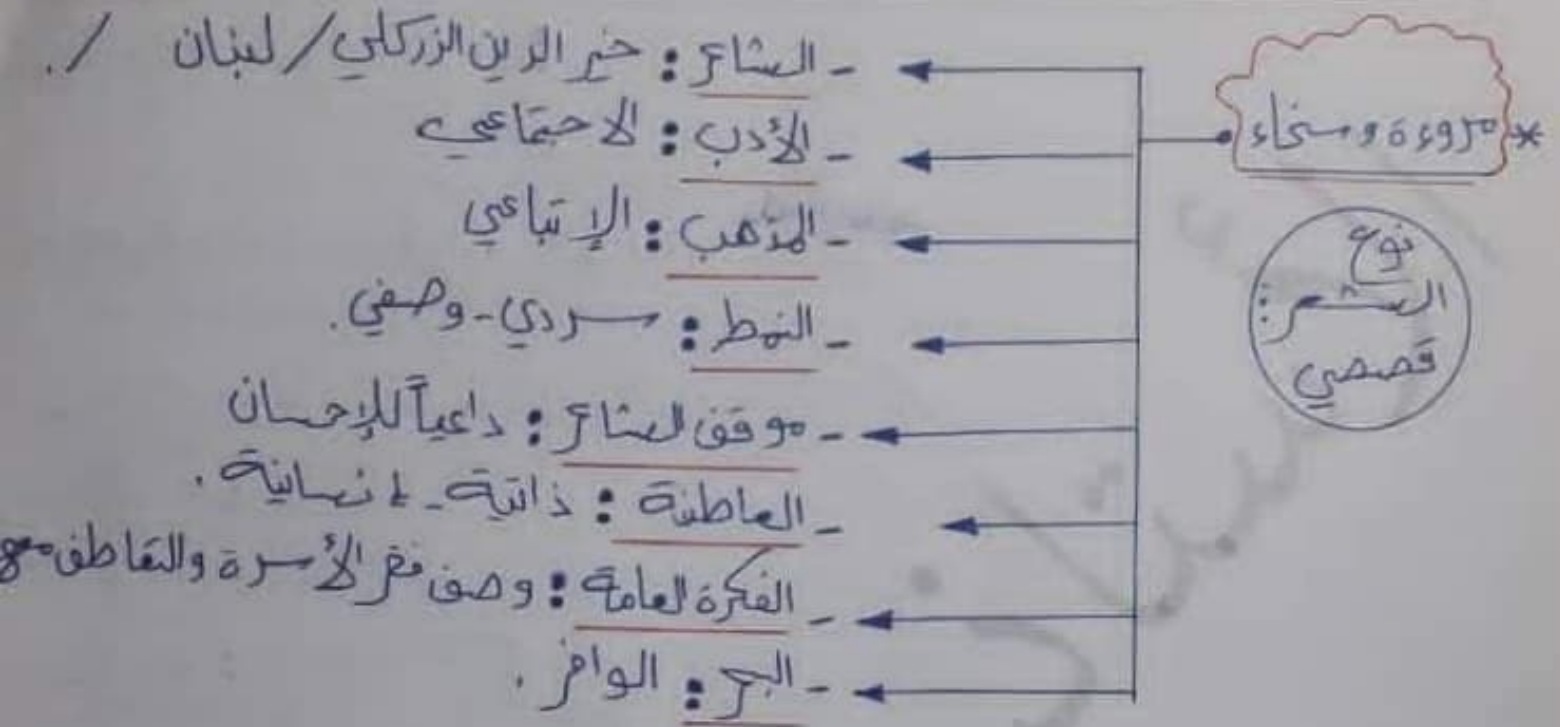 * مروءة وسخاء
نوع
الشعر:
قصصي
- الشاعر: خير الدين الزركلي / لبنان /.
- الأدب: الاجتماعي
- المذهب: الإتباعي
- النمط: سردي - وصفي.
- موقف الشاعر: داعياً للإحسان
- العاطفة: ذاتية - إنسانية.
- الفكرة العامة: وصف فقر الأسرة والتعاطف معها
- البحر: الوافر.